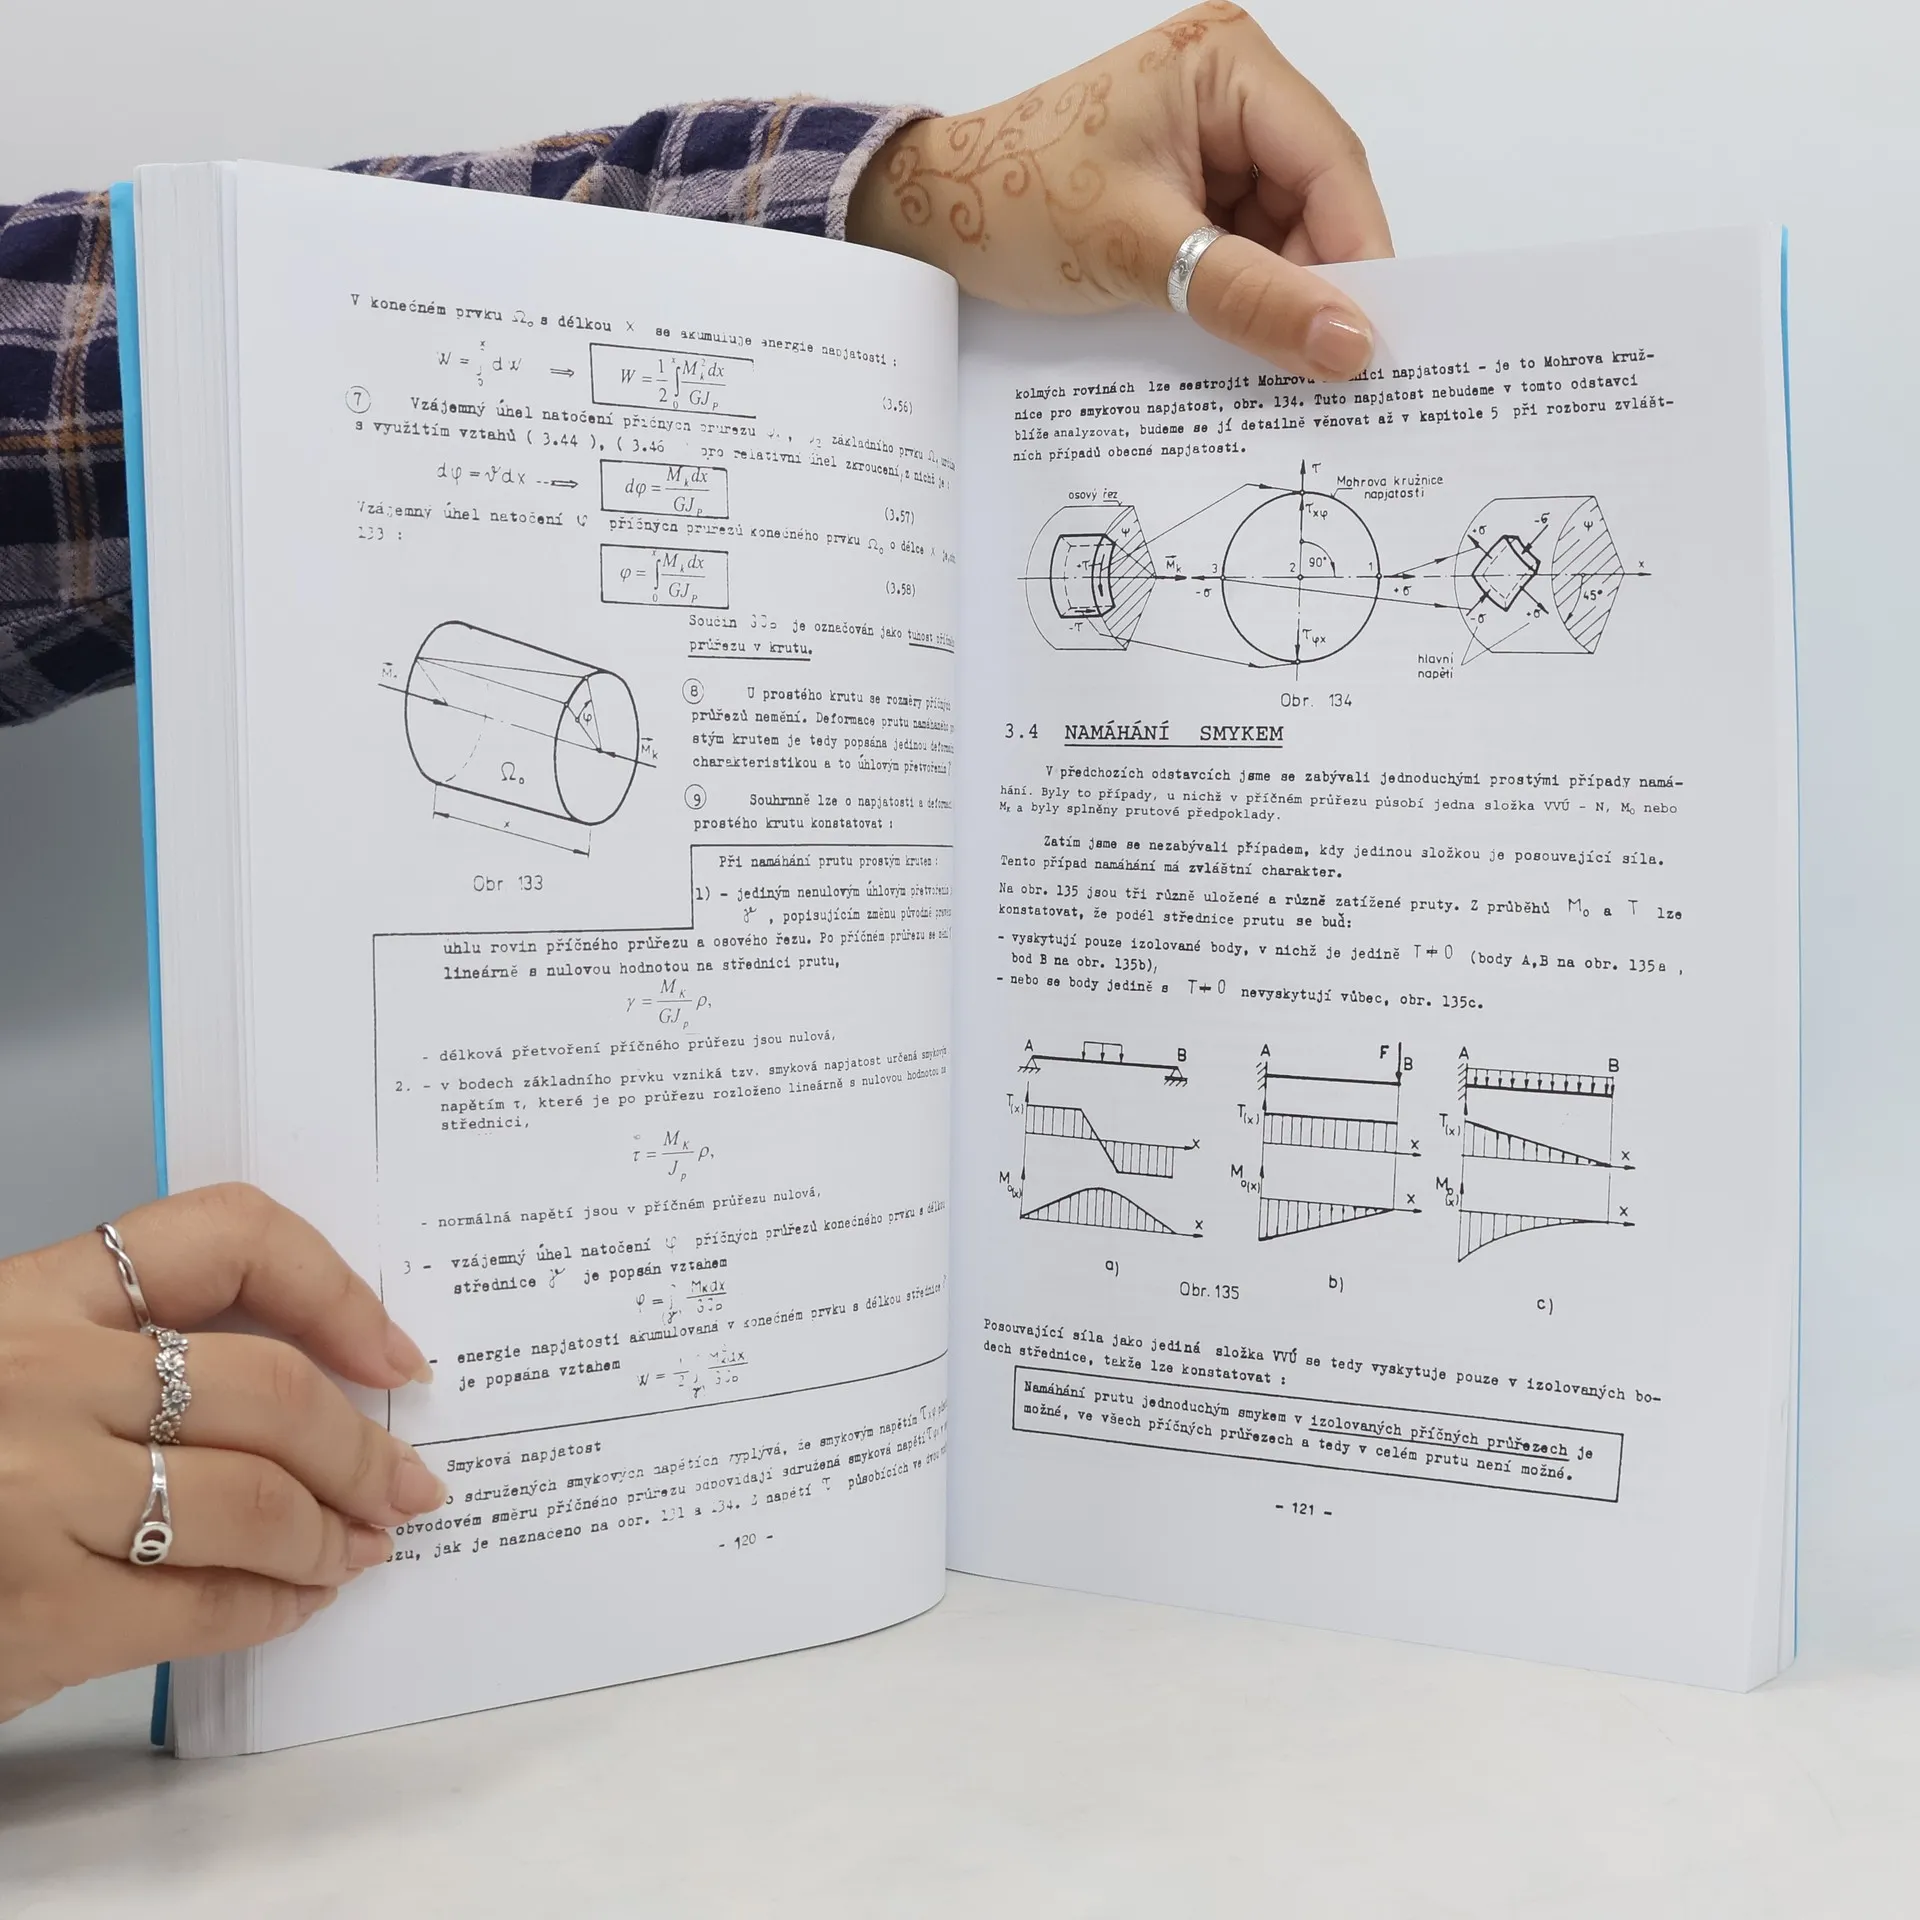 V konečném prvku Ω₀ s délkou x se akumuluje energie napjatosti :
W = ∫₀ˣ dW ⟹ W = 1/2 ∫₀ˣ M_k² dx / GJ_p (3.56)
7 Vzájemný úhel natočení příčných průřezu , základního prvku
s využitím vztahů ( 3.44 ), ( 3.46 pro relativní úhel zkroucení, z nichž je
dφ = ϑdx ⟹ dφ = M_k dx / GJ_p (3.57)
Vzájemný úhel natočení φ příčných průřezů konečného prvku Ω₀ o délce x
133 :
φ = ∫₀ˣ M_k dx / GJ_p (3.58)
Součin je označován jako tuhost
průřezu v krutu.
M_k
φ
M_k
Ω₀
x
Obr 133
8 U prostého krutu se rozměry příčných
průřezů nemění. Deformace prutu namáhaného
stým krutem je tedy popsána jedinou
charakteristikou a to úhlovým přetvořením
9 Souhrnně lze o napjatosti a
prostého krutu konstatovat :
Při namáhání prutu prostým krutem :
1) - jediným nenulovým úhlovým přetvořením
, popisujícím změnu původně
úhlu rovin příčného průřezu a osového řezu. Po příčném průřezu se
lineárně s nulovou hodnotou na střednici prutu,
γ = M_K / GJ_p ρ,
- délková přetvoření příčného průřezu jsou nulová,
2. - v bodech základního prvku vzniká tzv. smyková napjatost určená smykovým
napětím τ, které je po průřezu rozloženo lineárně s nulovou hodnotou na
střednici,
τ = M_K / J_p ρ,
- normálná napětí jsou v příčném průřezu nulová,
3 - vzájemný úhel natočení φ příčných průřezů konečného prvku s délkou
střednice γ je popsán vztahem
φ = ∫ M_K dx
- energie napjatosti akumulovaná v konečném prvku s délkou střednice
je popsána vztahem W =
Smyková napjatost
sdružených smykových napětích vyplývá, že smykovým napětím
obvodovém směru příčného průřezu odpovídají sdružená smyková napětí
jak je naznačeno na obr. 131 a 134. napětí τ působících ve dvou
- 120 -
kolmých rovinách lze sestrojit Mohrovu napjatosti - je to Mohrova kruž-
nice pro smykovou napjatost, obr. 134. Tuto napjatost nebudeme v tomto odstavci
blíže analyzovat, budeme se jí detailně věnovat až v kapitole 5 při rozboru zvlášt-
ních případů obecné napjatosti.
osový řez
τ
Mohrova kružnice
napjatosti
τxφ
ψ
+τ
-τ
M_k
3
2
90°
1
-σ
+σ
τφx
+σ
-σ
ψ
x
45°
-σ
+σ
hlavní
napětí
Obr. 134
3.4 NAMÁHÁNÍ SMYKEM
V předchozích odstavcích jsme se zabývali jednoduchými prostými případy namá-
hání. Byly to případy, u nichž v příčném průřezu působí jedna složka VVÚ - N, M₀ nebo
M_K a byly splněny prutové předpoklady.
Zatím jsme se nezabývali případem, kdy jedinou složkou je posouvající síla.
Tento případ namáhání má zvláštní charakter.
Na obr. 135 jsou tři různě uložené a různě zatížené pruty. Z průběhů M₀ a T lze
konstatovat, že podél střednice prutu se buď:
- vyskytují pouze izolované body, v nichž je jedině T ≠ 0 (body A,B na obr. 135a ,
bod B na obr. 135b),
- nebo se body jedině s T ≠ 0 nevyskytují vůbec, obr. 135c.
A B A F B A B
T(x) x T(x) x T(x) x
M₀(x) x M₀(x) x M₀(x) x
a) b) c)
Obr. 135
Posouvající síla jako jediná složka VVÚ se tedy vyskytuje pouze v izolovaných bo-
dech střednice, takže lze konstatovat :
Namáhání prutu jednoduchým smykem v izolovaných příčných průřezech je
možné, ve všech příčných průřezech a tedy v celém prutu není možné.
- 121 -